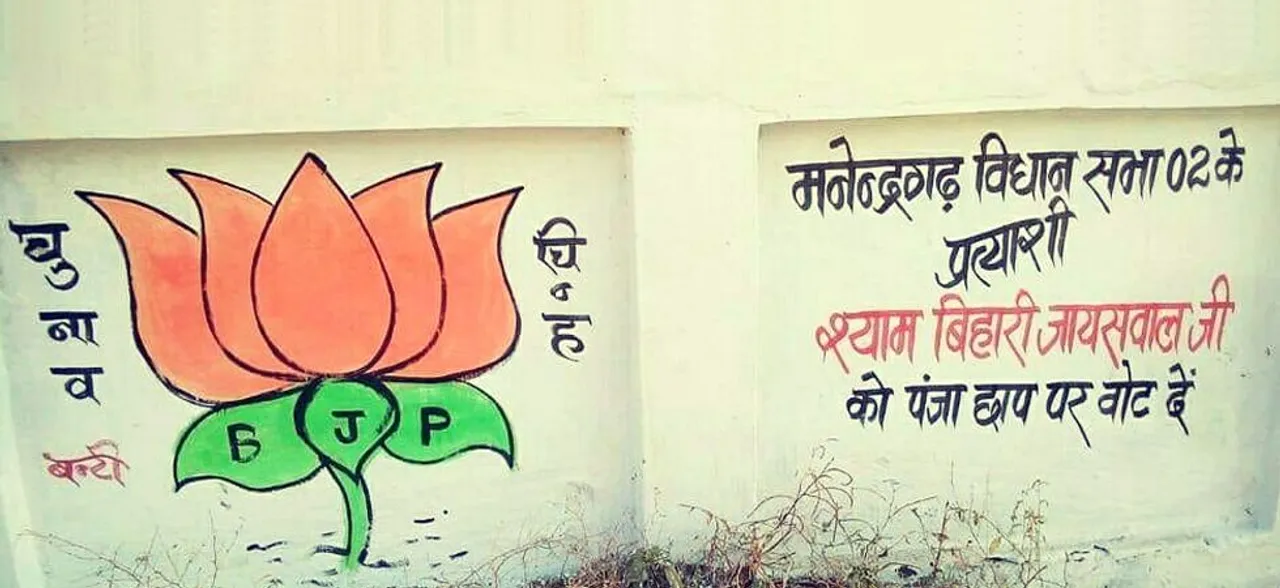 चुनाव
चिन्ह
B J P
बन्टी
मनेन्द्रगढ़ विधान सभा 02 के
प्रत्याशी
श्याम बिहारी जायसवाल जी
को पंजा छाप पर वोट दें